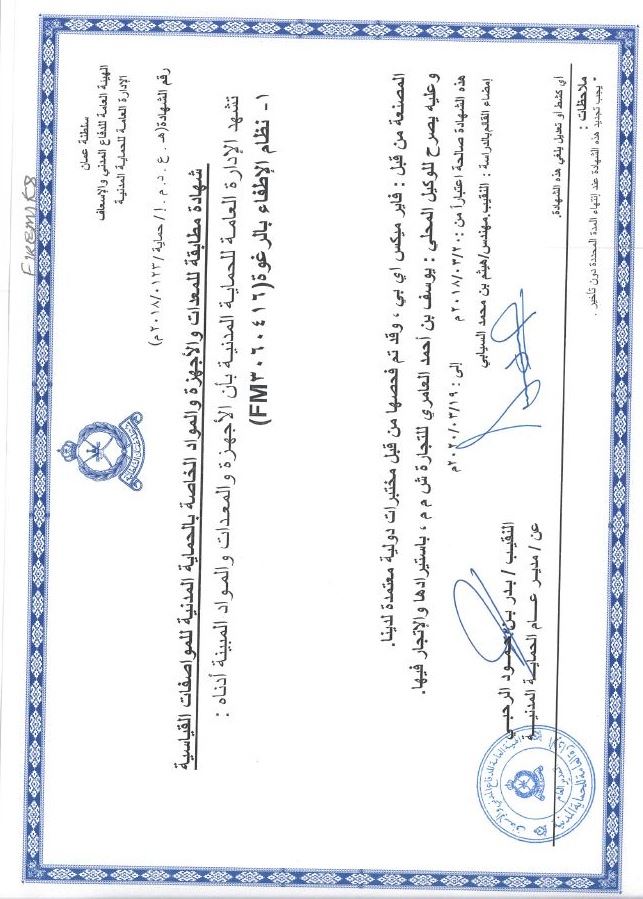 FIREMIKS
سلطنة عمان
الهيئة العامة للدفاع المدني والإسعاف
الإدارة العامة للحماية المدنية
رقم الشهادة(هـ . ع . د . م . إ / حماية /٢٠١٨/٠١٢٣م)
شهادة مطابقة للمعدات والأجهزة والمواد الخاصة بالحماية المدنية للمواصفات القياسية
تشهد الإدارة العامة للحماية المدنية بأن الأجهزة والمعدات والمواد المبينة أدناه :
١- نظام الإطفاء بالرغوة(FM٣٠٦٠٤١٦)
المصنعة من قبل : فاير ميكس اي بي ، وقد تم فحصها من قبل مختبرات دولية معتمدة لدينا.
وعليه يصرح للوكيل المحلي : يوسف بن أحمد العامري للتجارة ش م م ، باستيرادها والإتجار فيها.
هذه الشهادة صالحة اعتباراً من :٢٠١٨/٠٣/٢٠م إلى : ٢٠٢٠/٠٣/١٩م
إمضاء القائم بالدراسة : النقيب مهندس/هيثم بن محمد السيابي
النقيب / بدر بن حمود الرحبي
عن / مدير عام الحماية المدنية
أي كشط أو تعديل يلغي هذه الشهادة.
ملاحظات :
* يجب تجديد هذه الشهادة عند إنتهاء المدة المحددة دون تأخير .